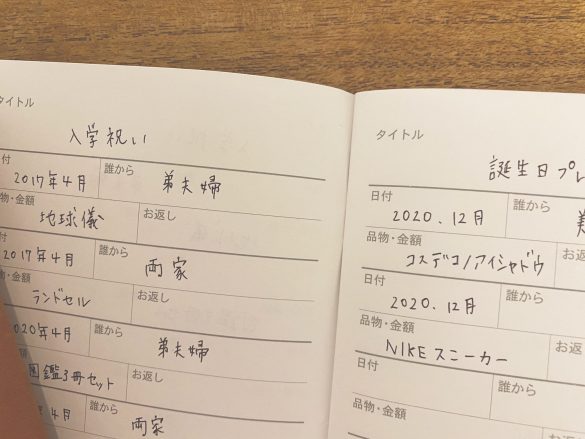 タイトル
入学祝い
付 2017年4月 誰から 弟夫婦
品物・金額 地球儀 お返し
付 2017年4月 誰から 両家
品物・金額 ランドセル お返し
2020年4月 誰から 弟夫婦
図鑑3冊セット お返し
4月 誰から 両家
タイトル
誕生日プレ
日付 2020.12月 誰から
品物・金額 コスデコ/アイシャドウ お返
日付 2020.12月 誰から
品物・金額 NIKEスニーカー お返
日付 誰から
品物・金額 お返